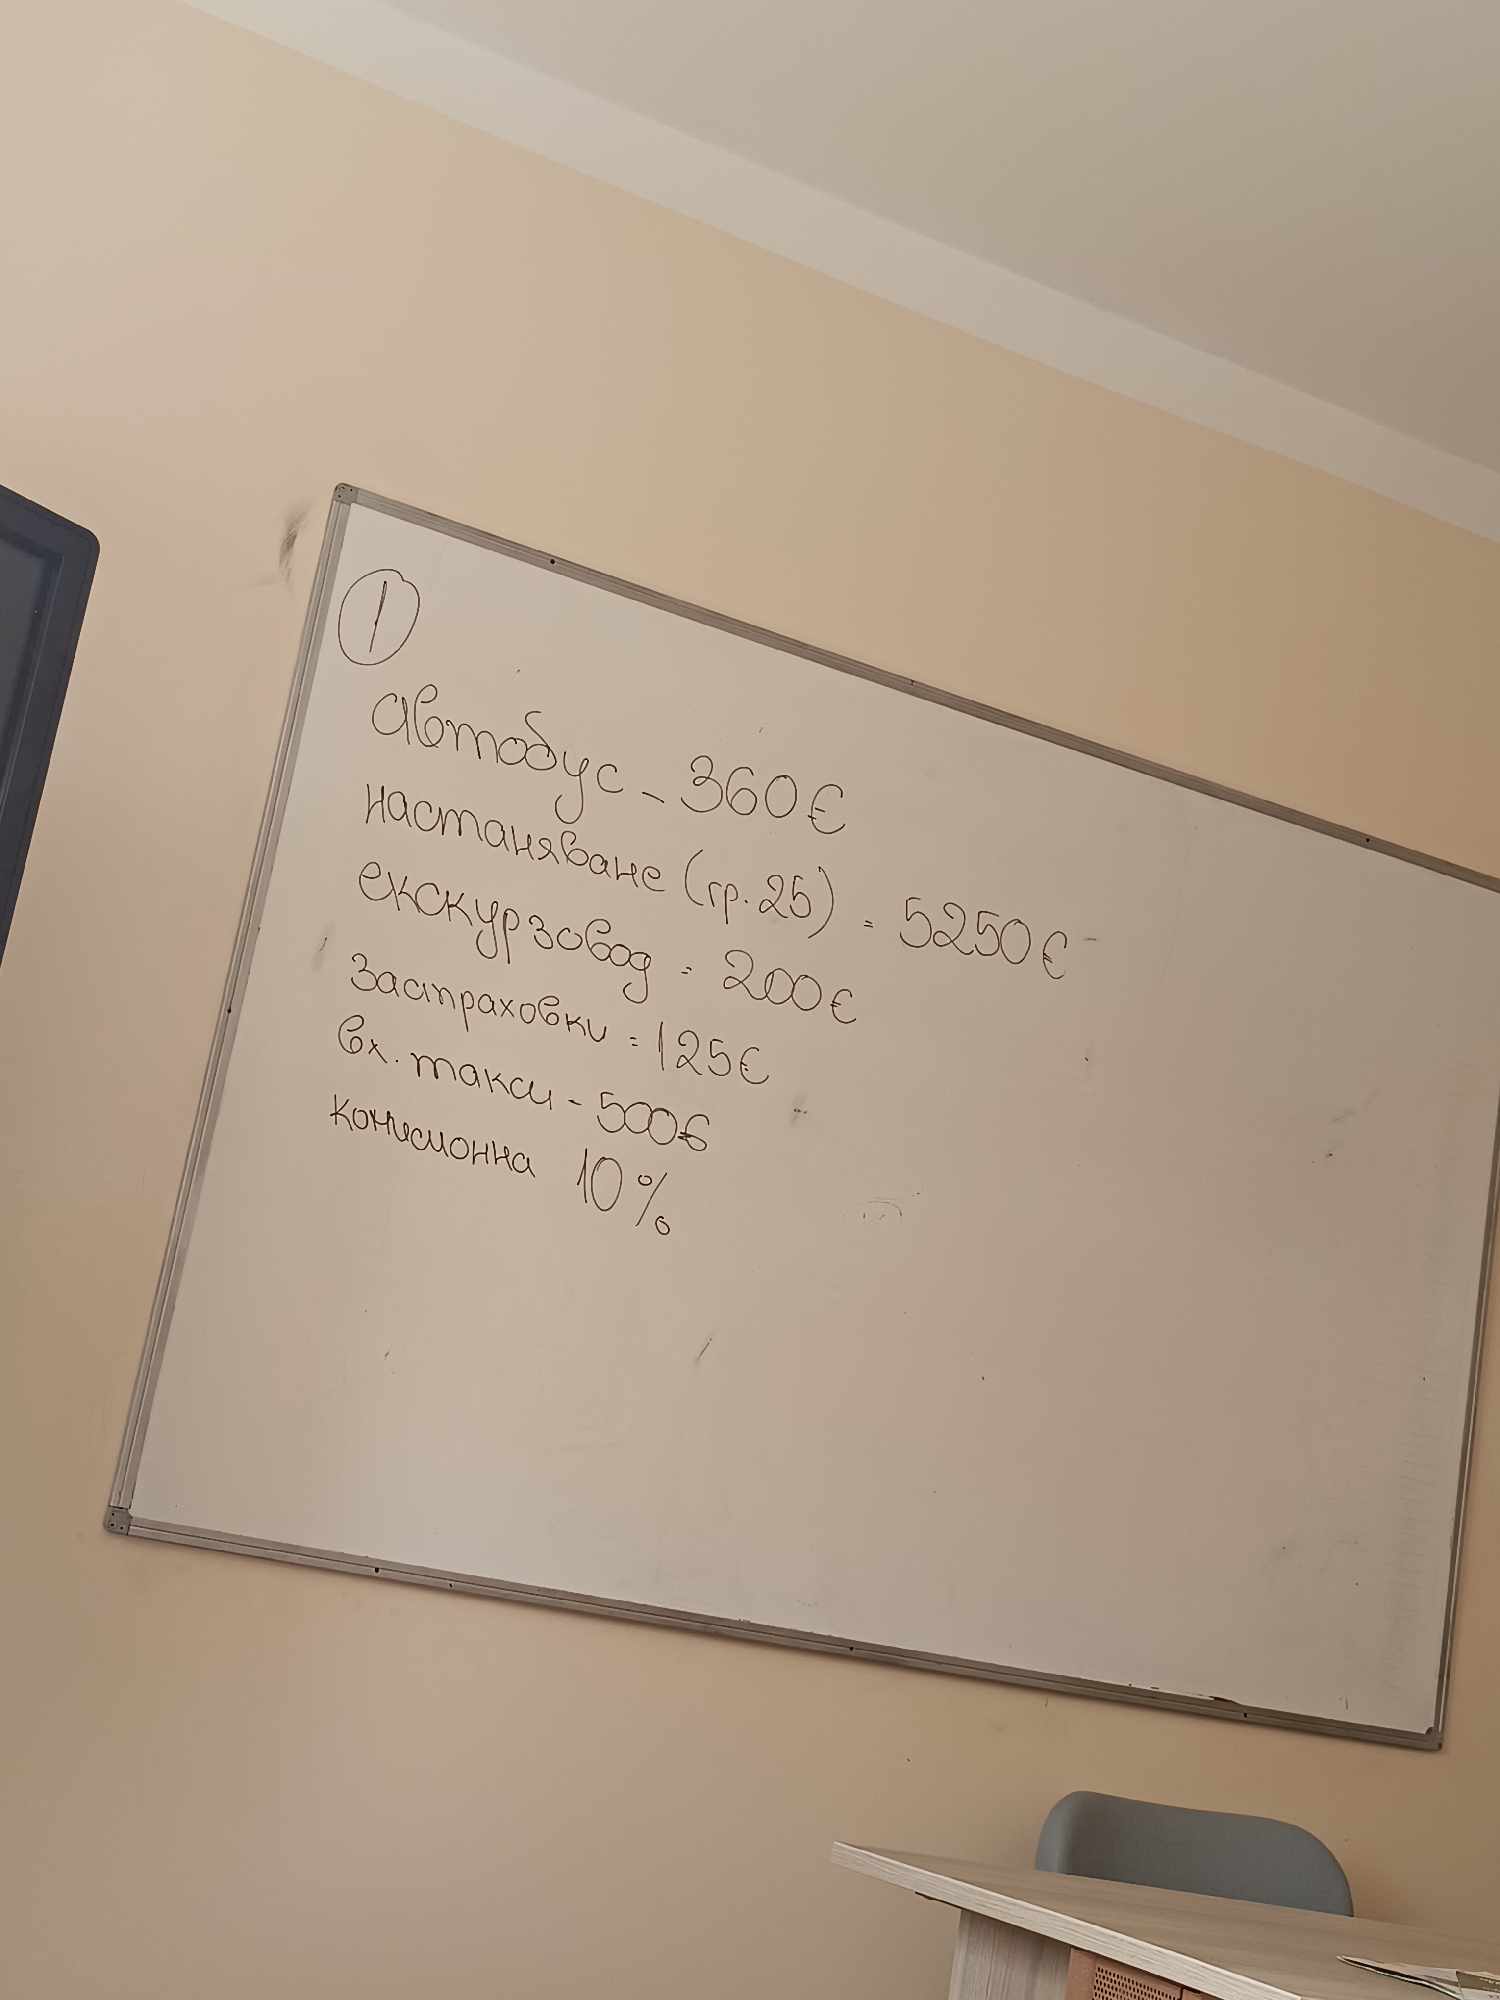 1
автобус - 360€
настаняване (гр.25) = 5250€
екскурзовод = 200€
Застраховки = 125€
вх. такси - 500€
комисионна 10%